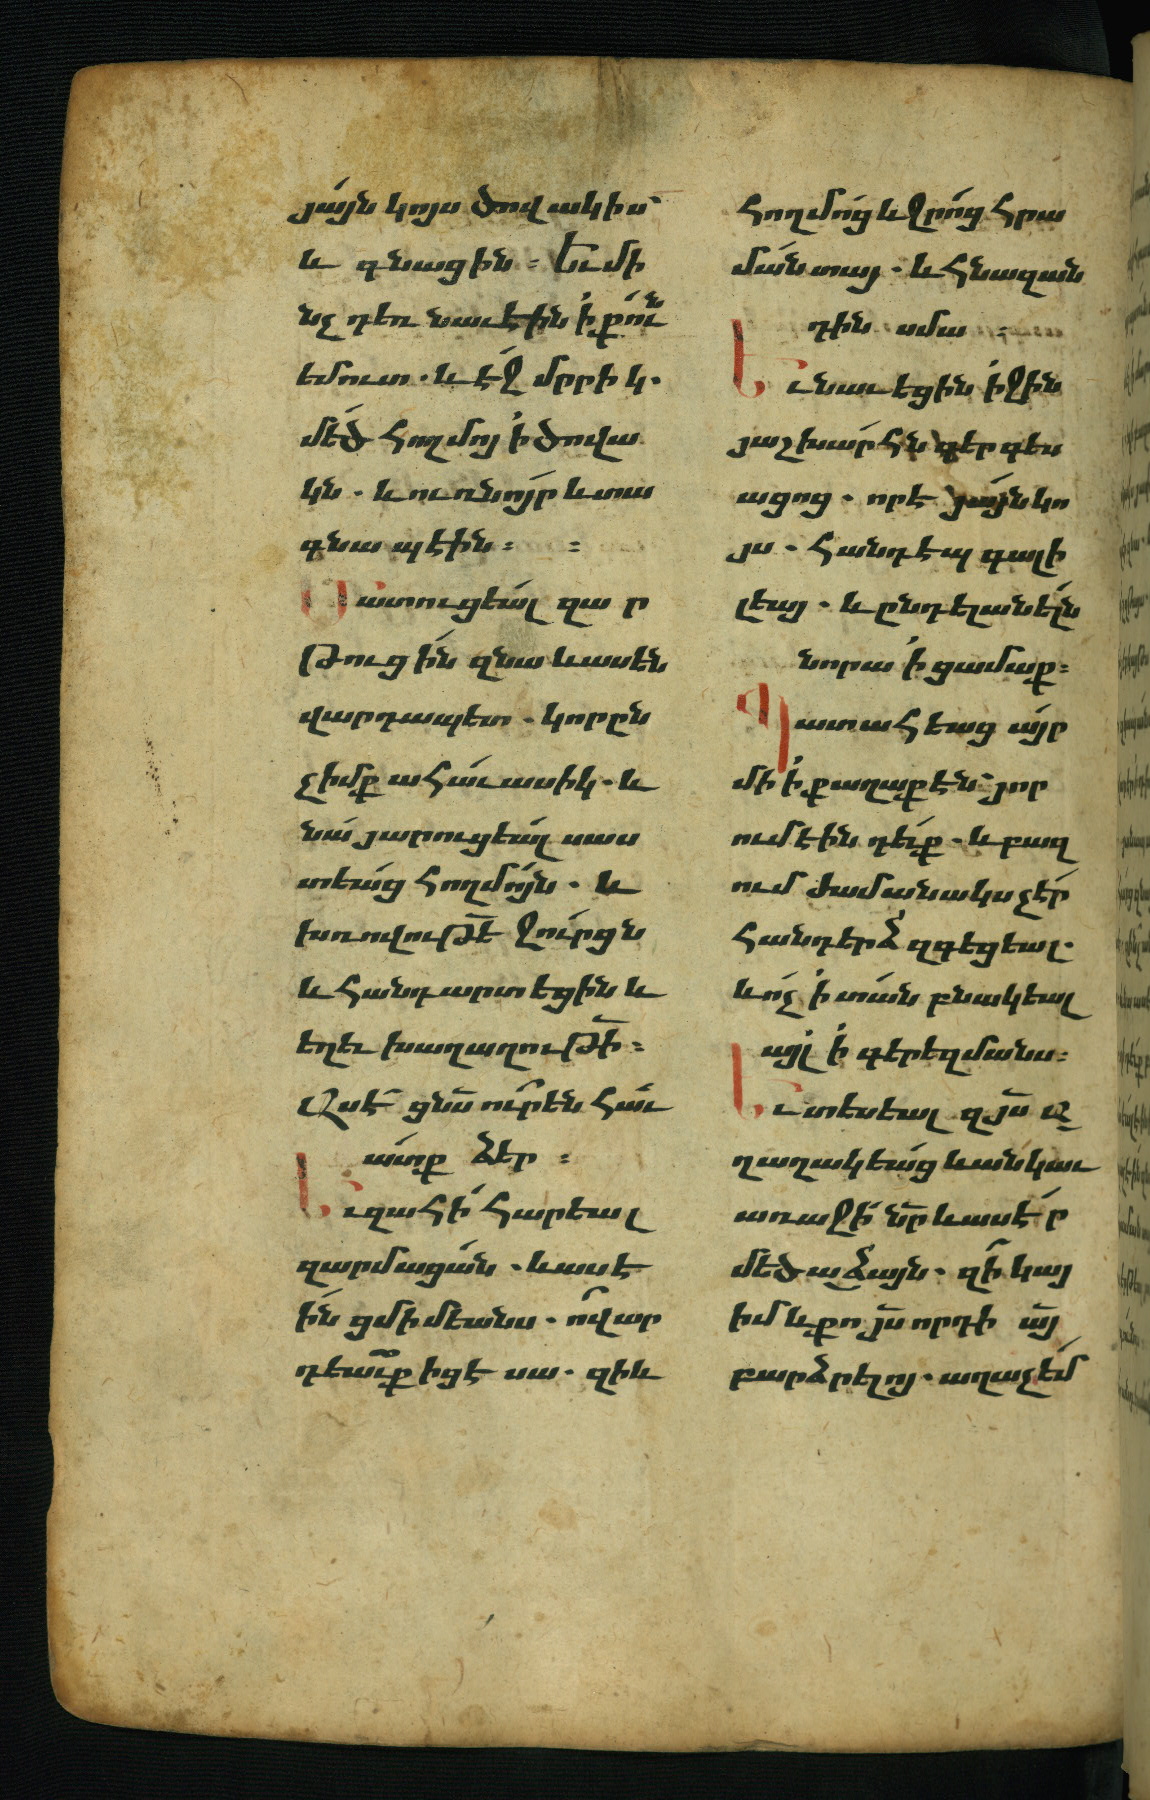 յայն կոյս ծովակիս՝
և գնացին ։ Եւ մի
նչ դեռ նաւէին ի քուն
եմուտ . և էջ մրրիկ .
մեծ հողմոյ ի ծովա
կն . և ուռնոյր և տա
գնապէին ։ ։
Մատուցեալ զար
թուցին զնա և ասեն
վարդապետ . կորըն
չիմք ահաւասիկ . և
նա յարուցեալ սաս
տեաց հողմոյն . և
խռովութե ջուրցն
և հանդարտեցին և
եղեւ խաղաղութի ։
Զսե ցնս ուրեն հաւ
ատք ձեր ։
Եւ զահի հարեալ
զարմացան . և ասէ
ին ցմիմեանս . ո՞վ ար
դեաւք իցէ սա . զի և
հողմոց և ջրոց հրա
ման տայ . և հնազան
դին սմա ։
Եւ նաւեցին իջին
յաշխարհն գերգես
ացոց . որ է յայնկո
յս . հանդէպ գալի
լեայ . և ընդ ելանելն
նորա ի ցամաք ։
Պատահեաց այր
մի ի քաղաքէն՝ յոր
ում էին դեւք . և բազ
ում ժամանակս չեր
հանդերձ զգեցեալ .
և ոչ ի տան բնակեալ
այլ ի գերեզմանս ։
Եւ տեսեալ զյս ա
ղաղակեաց և անկաւ
առաջի նր և ասէր
մեծաձայն . զի կայ
իմ և քո յս որդի այ
բարձրելոյ . աղաչեմ